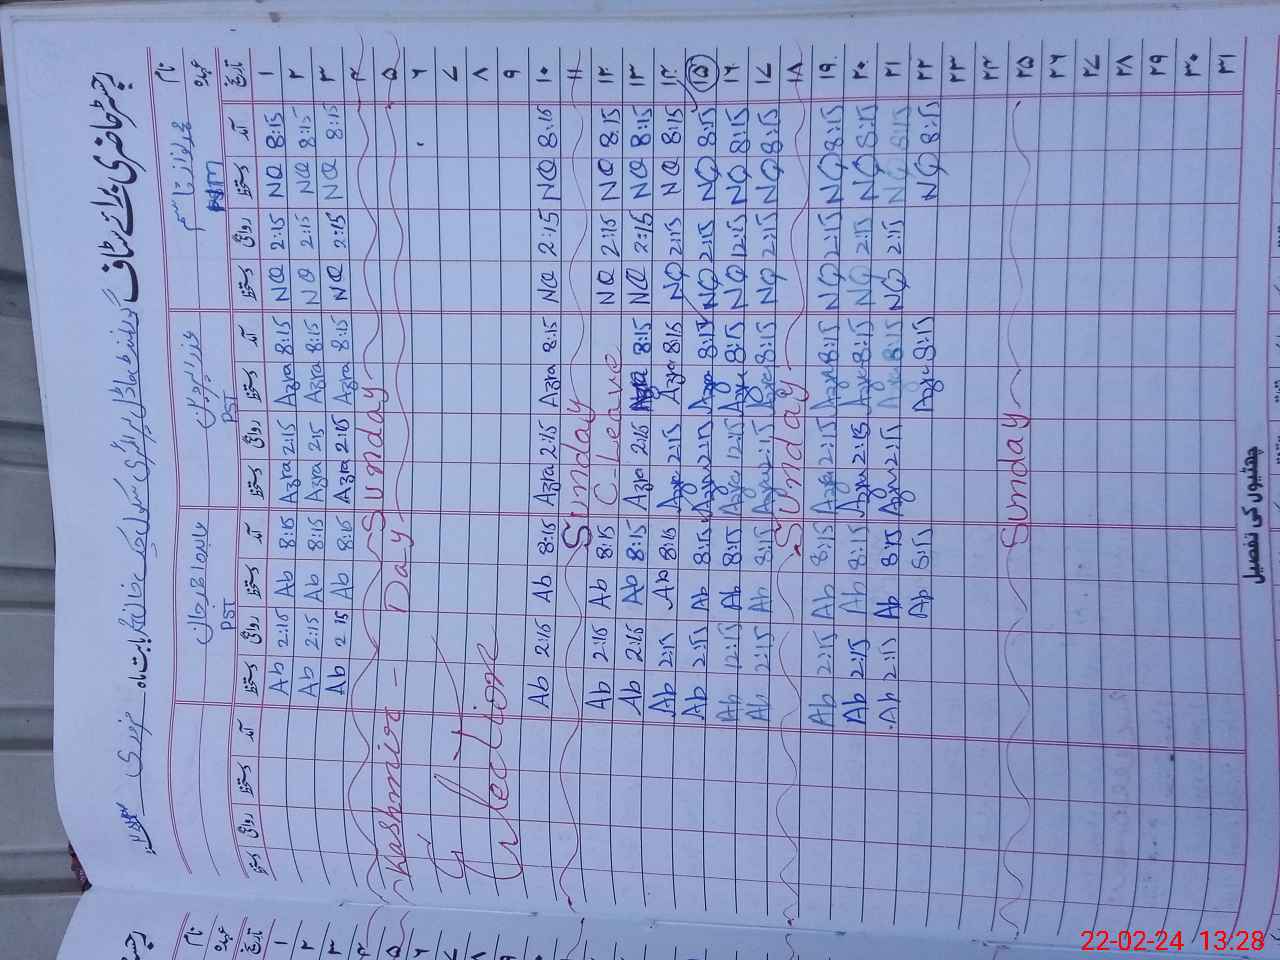 رجسٹر حاضری برائے سٹاف
بابت ماہ
نام
عہدہ PST PST
تاریخ آمد دستخط روانگی دستخط آمد دستخط روانگی دستخط آمد دستخط روانگی دستخط آمد دستخط روانگی دستخط
۱ 8:15 NQ 2:15 NQ 8:15 Azra 2:15 Azra 8:15 Ab 2:15 Ab
۲ 8:15 NQ 2:15 NQ 8:15 Azra 2:15 Azra 8:15 Ab 2:15 Ab
۳ 8:15 NQ 2:15 NQ 8:15 Azra 2:15 Azra 8:15 Ab 2:15 Ab
۴ Sunday
۵ Kashmir - Day
۶
۷
۸ Election
۹
۱۰ 8:15 NQ 2:15 NQ 8:15 Azra 2:15 Azra 8:15 Ab 2:15 Ab
۱۱ Sunday
۱۲ 8:15 NQ 2:15 NQ C-Leave 8:15 Ab 2:15 Ab
۱۳ 8:15 NQ 2:15 NQ 8:15 Azra 2:15 Azra 8:15 Ab 2:15 Ab
۱۴ 8:15 NQ 2:15 NQ 8:15 Azra 2:15 Azra 8:15 Ab 2:15 Ab
۱۵ 8:15 NQ 2:15 NQ 8:15 Azra 2:15 Azra 8:15 Ab 2:15 Ab
۱۶ 8:15 NQ 12:15 NQ 8:15 Azra 12:15 Azra 8:15 Ab 12:15 Ab
۱۷ 8:15 NQ 2:15 NQ 8:15 Azra 2:15 Azra 8:15 Ab 2:15 Ab
۱۸ Sunday
۱۹ 8:15 NQ 2:15 NQ 8:15 Azra 2:15 Azra 8:15 Ab 2:15 Ab
۲۰ 8:15 NQ 2:15 NQ 8:15 Azra 2:15 Azra 8:15 Ab 2:15 Ab
۲۱ 8:15 NQ 2:15 NQ 8:15 Azra 2:15 Azra 8:15 Ab 2:15 Ab
۲۲ 8:15 NQ 8:15 Azra 8:15 Ab
۲۳
۲۴
۲۵ Sunday
۲۶
۲۷
۲۸
۲۹
۳۰
۳۱
چھٹیوں کی تفصیل
نام
عہدہ
تاریخ
۱
۲
۳
۴
۵
۶
۷
۸
۹
22-02-24 13:28